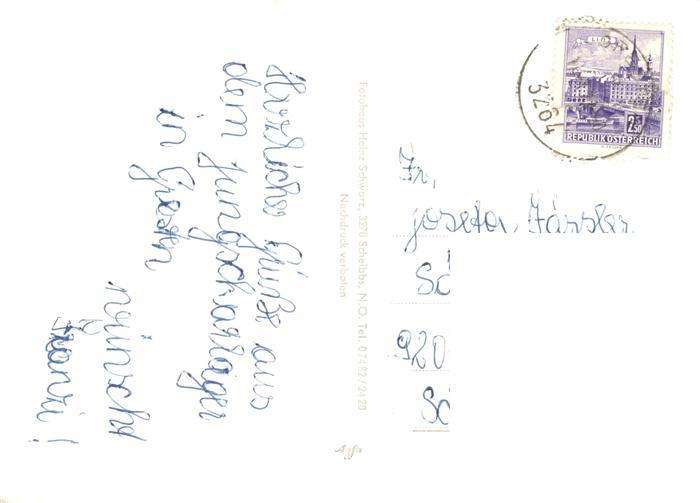 Herzliche Grüße aus
dem Jungscharlager
in Gresten
wünscht
Franzi!
Fotohaus Heinz Schwarz, 3270 Scheibbs, N.Ö. Tel. 07482/2428
Nachdruck verboten
3264
LINZ
2.50
REPUBLIK ÖSTERREICH
Fr.
Josefa
920